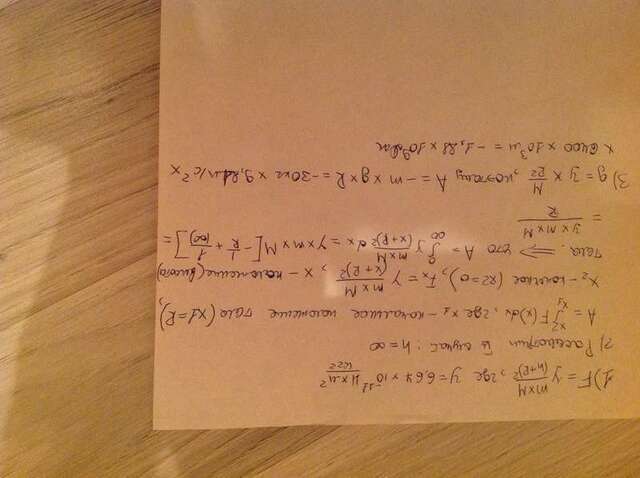 1) F = γ m×M/(h+R)², где γ = 6.67 × 10⁻¹¹ Н×м²/кг²
2) Рассмотрим случай: h = ∞
A = ∫ₓ₁ˣ² F(x)dx, где x₁ - начальное положение тела (x1 = R),
x₂ - конечное (x2=0), Fₓ = γ m×M/(x+R)², x - положение (высота)
тела. => что A = ∫ γ m×M/(x+R)² dx = γ×m×M×[-1/R + 1/(∞)] =
= γ×m×M/R
3) g = γ × M/R², поэтому A = -m×g×R = -30кг × 9,8м/с² ×
× 6400 × 10³м = -1,88 × 10⁹Дж